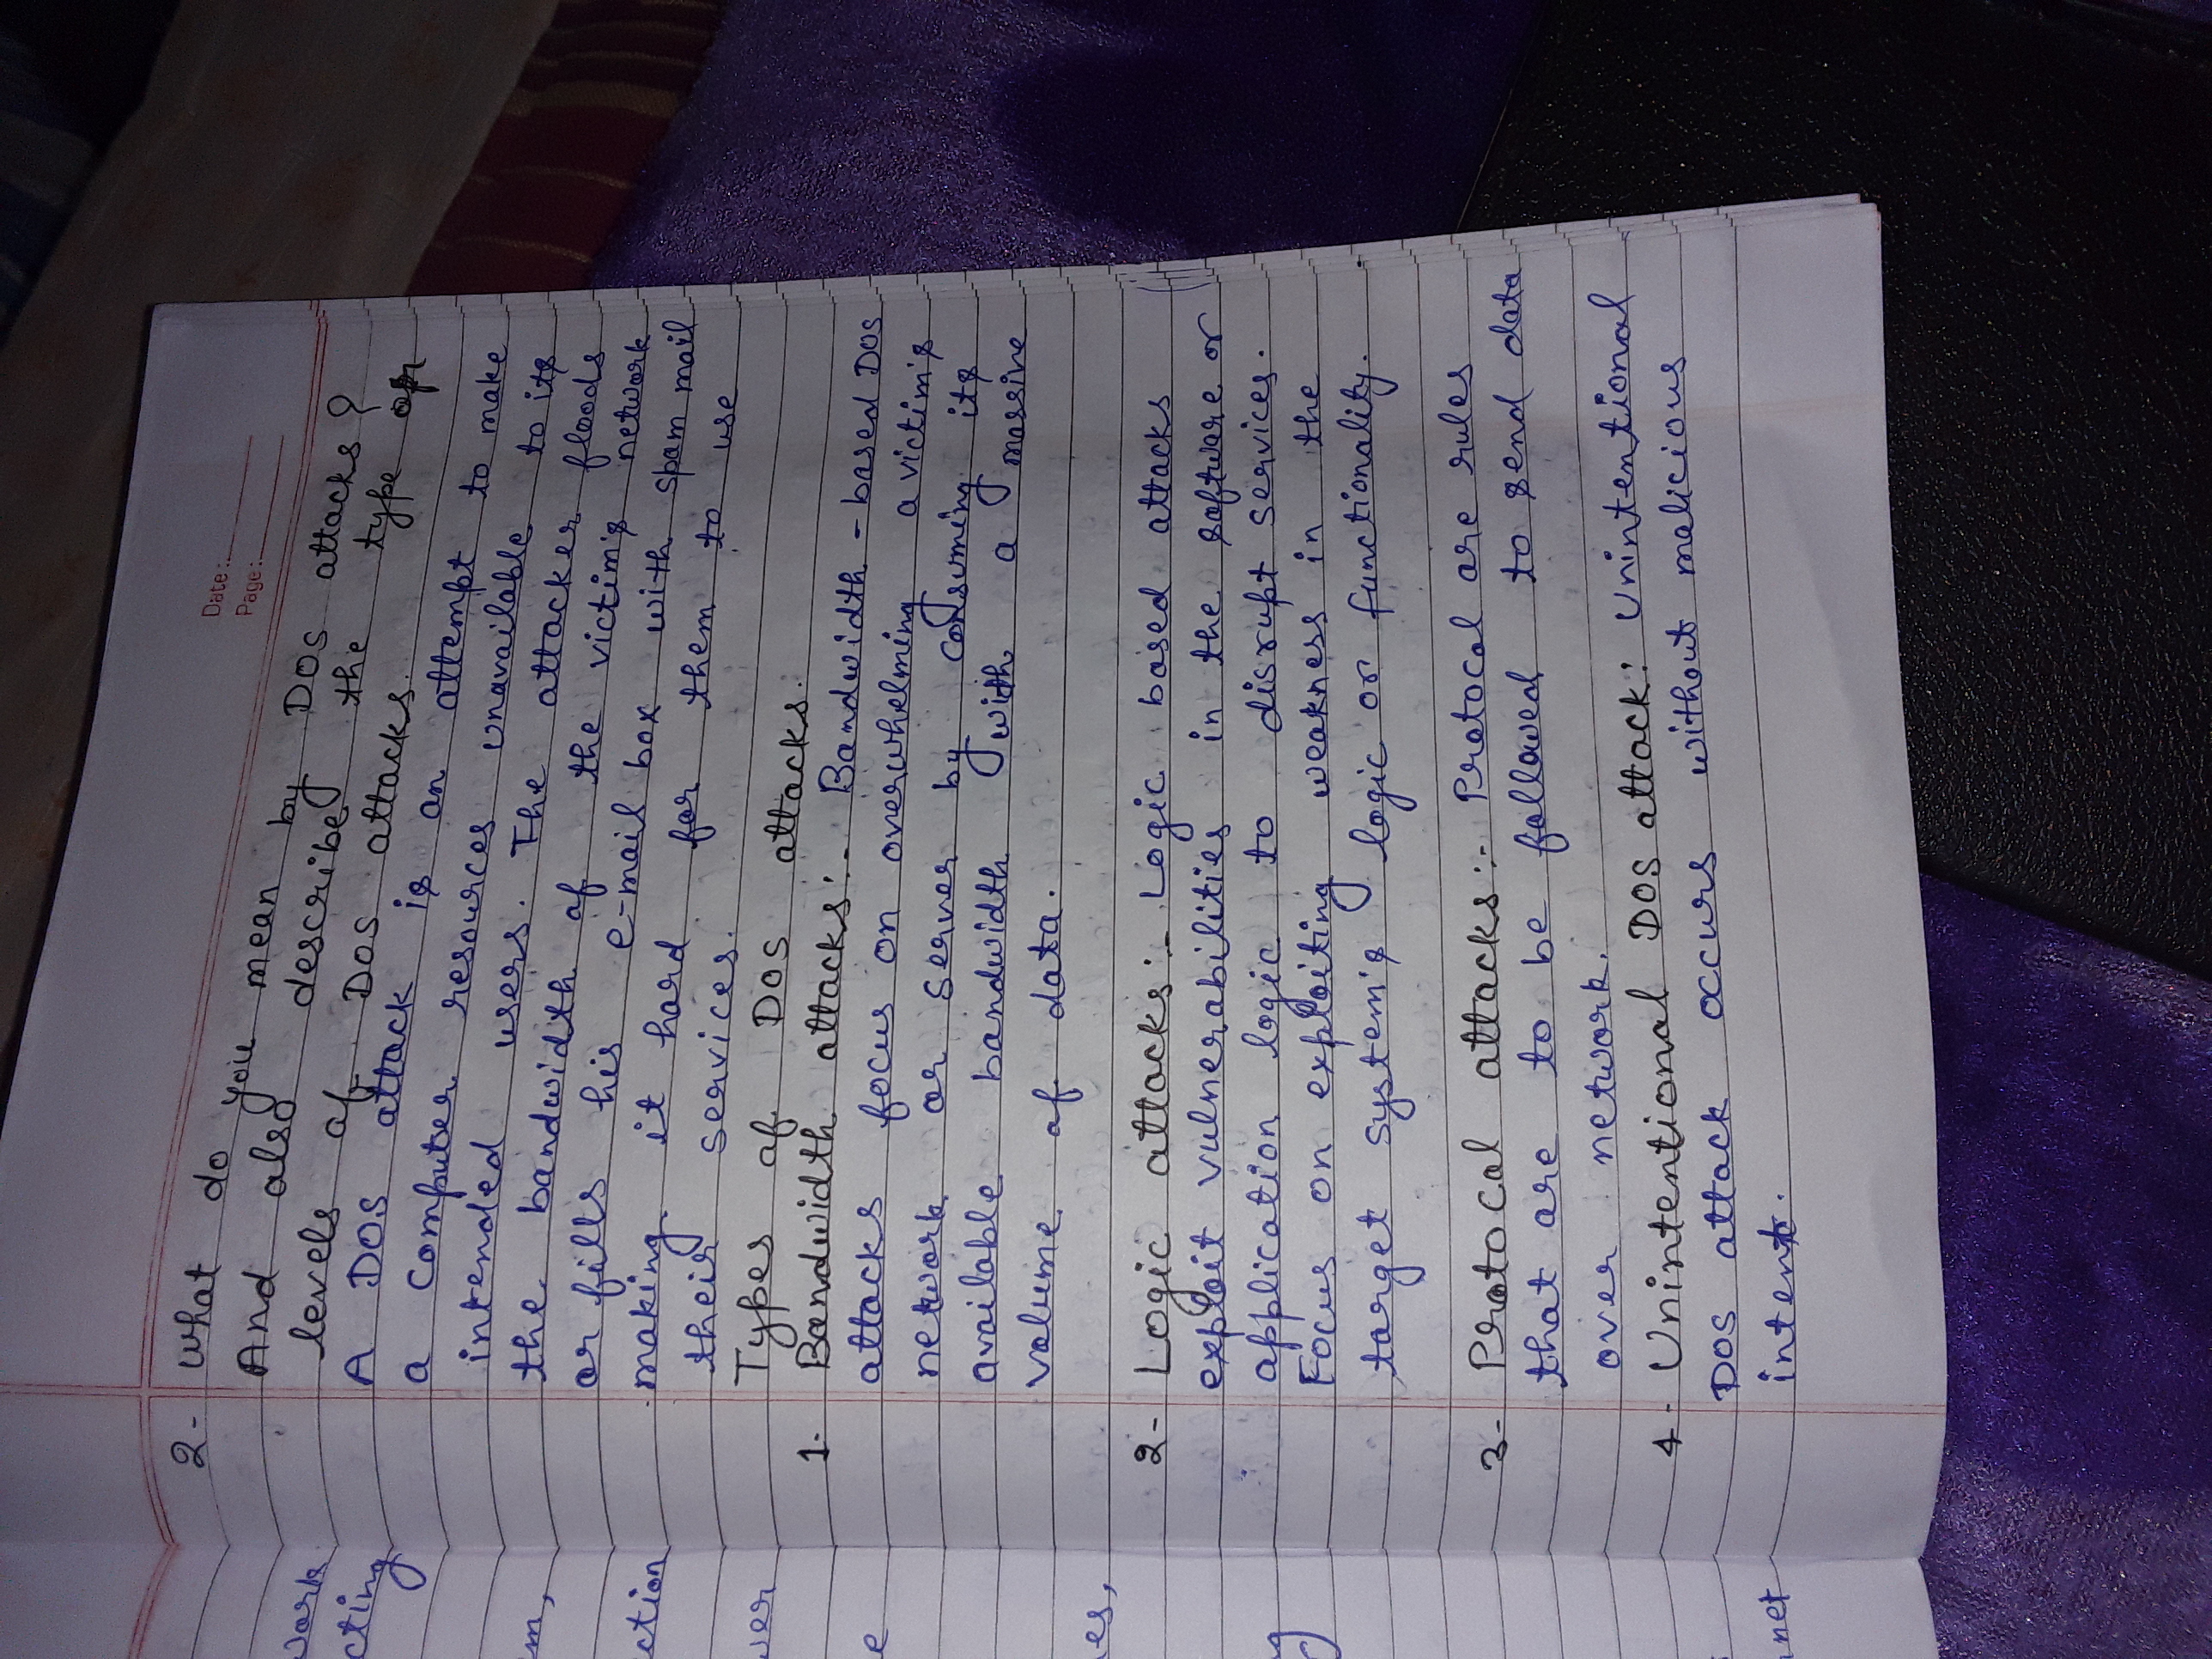 Date:
Page:
2- What do you mean by DOS attacks?
And also describe the type or
levels of DOS attacks.
A DOS attack is an attempt to make
a computer resources unavailable to its
intended users. The attacker floods
the bandwidth of the victim's network
or fills his e-mail box with spam mail
making it hard for them to use
their services.
Types of DOS attacks.
1. Bandwidth attacks:- Bandwidth-based DOS
attacks focus on overwhelming a victim's
network or server by consuming its
available bandwidth with a massive
volume of data.
2- Logic attacks:- Logic based attacks
exploit vulnerabilities in the software or
application logic to disrupt services.
Focus on exploiting weakness in the
target system's logic or functionality.
3- Protocal attacks:- Protocal are rules
that are to be followed to send data
over network.
4- Unintentional DOS attack: Unintentional
DOS attack occurs without malicious
intent.